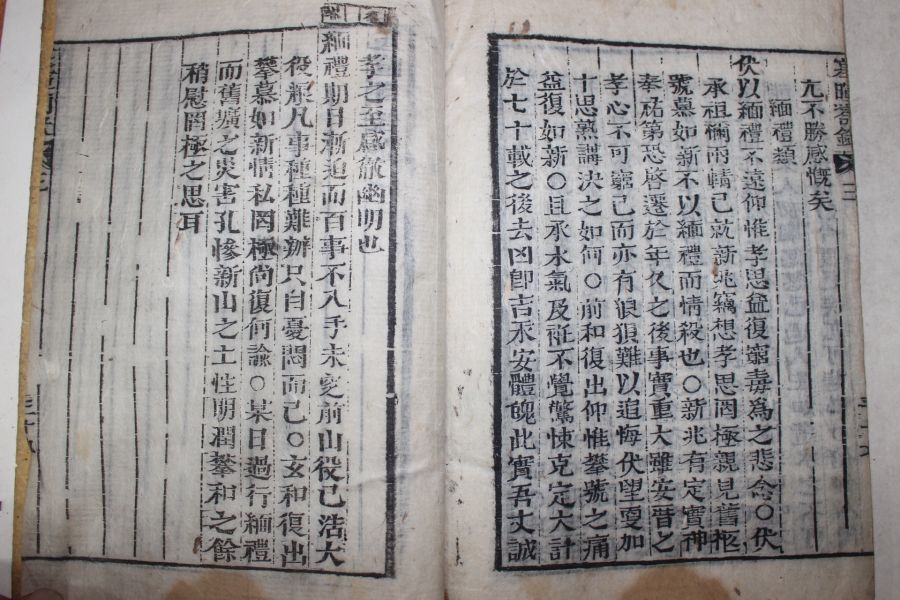 寒暄箚錄 卷三
尤不勝感慨矣
緬禮類
伏以緬禮不遠仰惟孝思益復窮毒爲之悲念○伏
承祖禰兩輀已就新兆竊想孝思罔極親見舊柩
號慕如新不以緬禮而情殺也○新兆有定實神
奉祐第恐啓遷於年久之後事實重大雖安厝之
孝心不可窮已而亦有狼狽難以追悔伏望更加
十思熟講決之如何○前和復出仰惟攀號之痛
益復如新○且承水氣及袵不覺驚悚克定大計
於七十載之後去凶卽吉永安體魄此實吾丈誠
孝之至感徹幽明也
緬禮期日漸迫而百事不入手未定前山役已浩大
役粮凡事種種難辦只自憂悶而已○玄和復出
攀慕如新情私罔極尙復何諭○某日過行緬禮
而舊壙之災害孔慘新山之土性明潤攀和之餘
稍慰罔極之思耳